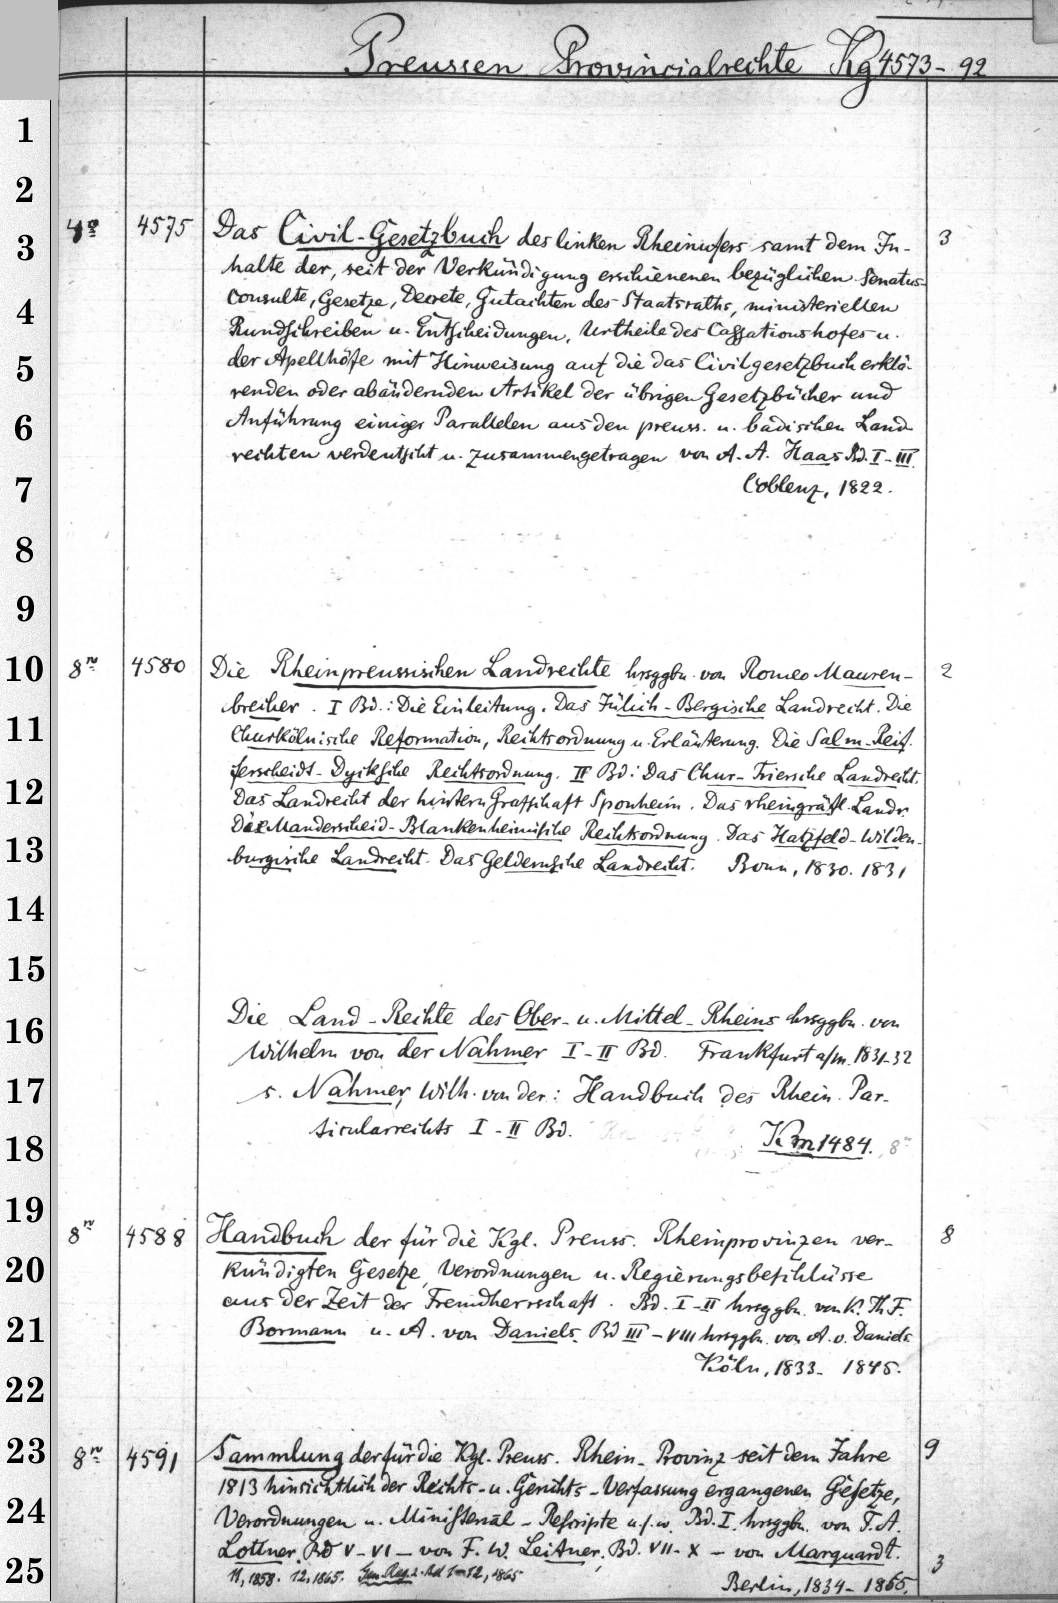 Preussen Provincialrechte Kg 4573-92
1
2
3
4
5
6
7
8
9
10
11
12
13
14
15
16
17
18
19
20
21
22
23
24
25
4° 4575 Das Civil-Gesetzbuch des linken Rheinufers samt dem In- 3
halte der, seit der Verkündigung erschienenen bezüglichen Senatus-
Consulte, Gesetze, Decrete, Gutachten des Staatsraths, ministeriellen
Rundschreiben u. Entscheidungen, Urtheile des Cassationshofes u.
der Apellhöfe mit Hinweisung auf die das Civilgesetzbuch erklä-
renden oder abändernden Artikel der übrigen Gesetzbücher und
Anführung einiger Parallelen aus den preuss. u. badischen Land
rechten verdeutscht u. zusammengetragen von A. A. Haas Bd. I-III
Coblenz, 1822.
8° 4580 Die Rheinpreussischen Landrechte hrsggbn. von Romeo Mauren- 2
brecher. I Bd.: Die Einleitung. Das Jülich-Bergische Landrecht. Die
Churkölnische Reformation, Rechtsordnung u. Erläuterung. Die Salm-Reif-
ferscheidt-Dyksche Rechtsordnung. II Bd: Das Chur-Triersche Landrecht.
Das Landrecht der hintern Grafschaft Sponheim. Das rheingräfl. Landr.
Die Manderscheid-Blankenheimische Rechtsordnung. Das Hatzfeld-Wilden-
burgische Landrecht. Das Geldernsche Landrecht. Bonn, 1830. 1831
Die Land-Rechte des Ober- u. Mittel-Rheins hrsggbn. von
Wilhelm von der Nahmer I-II Bd. Frankfurt a/m. 1831-32
s. Nahmer, Wilh. von der: Handbuch des Rhein. Par-
ticularrechts I-II Bd.
Km 1484. 8°
8° 4588 Handbuch der für die Kgl. Preuss. Rheinprovinzen ver- 8
kündigten Gesetze, Verordnungen u. Regierungsbeschlüsse
aus der Zeit der Fremdherrschaft. Bd. I-II hrsggbn. von K. Th. F.
Bormann u. A. von Daniels. Bd III-VIII hrsggbn. von A. v. Daniels
Köln, 1833-1845.
8° 4591 Sammlung der für die Kgl. Preuss. Rhein-Provinz seit dem Jahre 9
1813 hinsichtlich der Rechts- u. Gerichts-Verfassung ergangenen Gesetze,
Verordnungen u. Ministerial-Rescripte u.s.w. Bd. I. hrsggbn. von F. A.
Lottner, Bd V-VI - von F. W. Leitner, Bd. VII-X - von Marquardt.
11, 1858. 12, 1865. Gen. Reg. z. Bd 1-12, 1865 3
Berlin, 1834-1865.